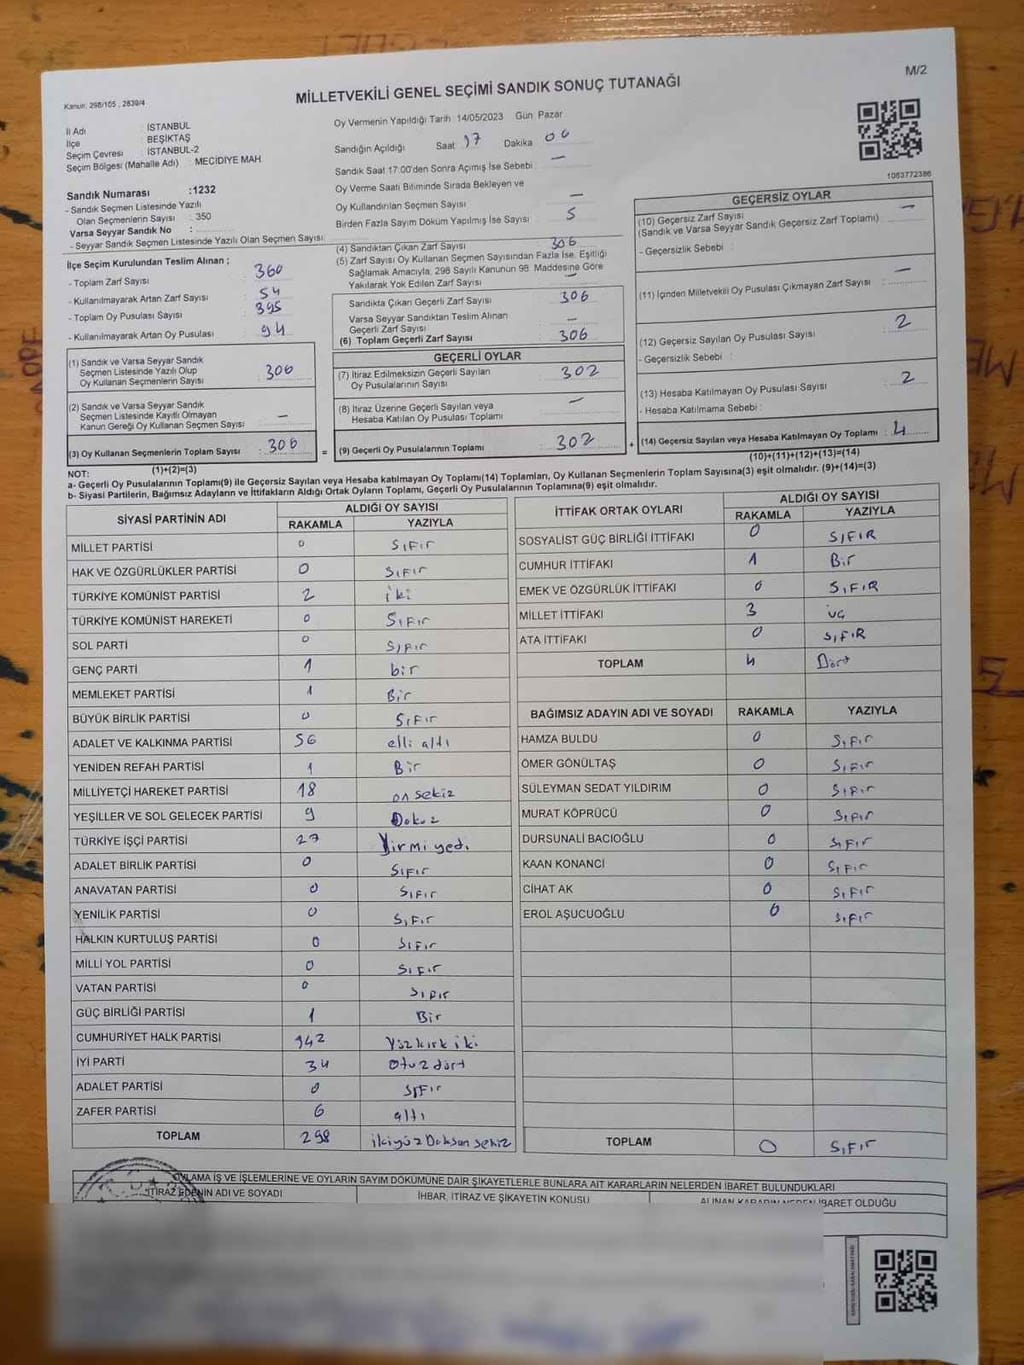 M/2
Kanun: 298/105 , 2839/4
MİLLETVEKİLİ GENEL SEÇİMİ SANDIK SONUÇ TUTANAĞI
İl Adı : İSTANBUL
İlçe : BEŞİKTAŞ
Seçim Çevresi : İSTANBUL-2
Seçim Bölgesi (Mahalle Adı) : MECİDİYE MAH.
Oy Vermenin Yapıldığı Tarih 14/05/2023 Gün Pazar
Sandığın Açıldığı Saat 17 Dakika 00
Sandık Saat 17:00'den Sonra Açımış İse Sebebi : —
Oy Verme Saati Bitiminde Sırada Bekleyen ve
Oy Kullandırılan Seçmen Sayısı —
Birden Fazla Sayım Döküm Yapılmış İse Sayısı 5
1063772386
Sandık Numarası :1232
- Sandık Seçmen Listesinde Yazılı
Olan Seçmenlerin Sayısı : 350
Varsa Seyyar Sandık No :
- Seyyar Sandık Seçmen Listesinde Yazılı Olan Seçmen Sayısı:
İlçe Seçim Kurulundan Teslim Alınan ;
- Toplam Zarf Sayısı : 360
- Kullanılmayarak Artan Zarf Sayısı : 54
- Toplam Oy Pusulası Sayısı : 395
- Kullanılmayarak Artan Oy Pusulası : 94
(1) Sandık ve Varsa Seyyar Sandık
Seçmen Listesinde Yazılı Olup
Oy Kullanan Seçmenlerin Sayısı : 306
(2) Sandık ve Varsa Seyyar Sandık
Seçmen Listesinde Kayıtlı Olmayan
Kanun Gereği Oy Kullanan Seçmen Sayısı : —
(3) Oy Kullanan Seçmenlerin Toplam Sayısı : 306
(1)+(2)=(3)
(4) Sandıktan Çıkan Zarf Sayısı 306
(5) Zarf Sayısı Oy Kullanan Seçmen Sayısından Fazla İse, Eşitliği
Sağlamak Amacıyla, 298 Sayılı Kanunun 98. Maddesine Göre
Yakılarak Yok Edilen Zarf Sayısı : —
Sandıkta Çıkan Geçerli Zarf Sayısı 306
Varsa Seyyar Sandıktan Teslim Alınan
Geçerli Zarf Sayısı —
(6) Toplam Geçerli Zarf Sayısı : 306
GEÇERLİ OYLAR
(7) İtiraz Edilmeksizin Geçerli Sayılan
Oy Pusulalarının Sayısı : 302
(8) İtiraz Üzerine Geçerli Sayılan veya
Hesaba Katılan Oy Pusulası Toplamı : —
= (9) Geçerli Oy Pusulalarının Toplamı : 302
GEÇERSİZ OYLAR
(10) Geçersiz Zarf Sayısı —
(Sandık ve Varsa Seyyar Sandık Geçersiz Zarf Toplamı)
- Geçersizlik Sebebi :
(11) İçinden Milletvekili Oy Pusulası Çıkmayan Zarf Sayısı : —
(12) Geçersiz Sayılan Oy Pusulası Sayısı : 2
- Geçersizlik Sebebi :
(13) Hesaba Katılmayan Oy Pusulası Sayısı : 2
- Hesaba Katılmama Sebebi :
+ (14) Geçersiz Sayılan veya Hesaba Katılmayan Oy Toplamı : 4
(10)+(11)+(12)+(13)=(14)
NOT:
a- Geçerli Oy Pusulalarının Toplamı(9) ile Geçersiz Sayılan veya Hesaba katılmayan Oy Toplamı(14) Toplamları, Oy Kullanan Seçmenlerin Toplam Sayısına(3) eşit olmalıdır. (9)+(14)=(3)
b- Siyasi Partilerin, Bağımsız Adayların ve İttifakların Aldığı Ortak Oyların Toplamı, Geçerli Oy Pusulalarının Toplamına(9) eşit olmalıdır.
SİYASİ PARTİNİN ADI ALDIĞI OY SAYISI
RAKAMLA YAZIYLA
MİLLET PARTİSİ 0 SıFır
HAK VE ÖZGÜRLÜKLER PARTİSİ 0 SıFır
TÜRKİYE KOMÜNİST PARTİSİ 2 iki
TÜRKİYE KOMÜNİST HAREKETİ 0 SıFır
SOL PARTİ 0 SıFır
GENÇ PARTİ 1 bir
MEMLEKET PARTİSİ 1 Bir
BÜYÜK BİRLİK PARTİSİ 0 SıFır
ADALET VE KALKINMA PARTİSİ 56 elli altı
YENİDEN REFAH PARTİSİ 1 Bir
MİLLİYETÇİ HAREKET PARTİSİ 18 on sekiz
YEŞİLLER VE SOL GELECEK PARTİSİ 9 Dokuz
TÜRKİYE İŞÇİ PARTİSİ 27 Yirmi yedi
ADALET BİRLİK PARTİSİ 0 SıFır
ANAVATAN PARTİSİ 0 SıFır
YENİLİK PARTİSİ 0 SıFır
HALKIN KURTULUŞ PARTİSİ 0 SıFır
MİLLİ YOL PARTİSİ 0 SıFır
VATAN PARTİSİ 0 SıFır
GÜÇ BİRLİĞİ PARTİSİ 1 Bir
CUMHURİYET HALK PARTİSİ 142 Yüz kırk iki
İYİ PARTİ 34 Otuz dört
ADALET PARTİSİ 0 SıFır
ZAFER PARTİSİ 6 altı
TOPLAM 298 ikiyüz Doksan sekiz
İTTİFAK ORTAK OYLARI ALDIĞI OY SAYISI
RAKAMLA YAZIYLA
SOSYALİST GÜÇ BİRLİĞİ İTTİFAKI 0 SIFIR
CUMHUR İTTİFAKI 1 Bir
EMEK VE ÖZGÜRLÜK İTTİFAKI 0 SIFIR
MİLLET İTTİFAKI 3 üç
ATA İTTİFAKI 0 SIFIR
TOPLAM 4 Dört
BAĞIMSIZ ADAYIN ADI VE SOYADI RAKAMLA YAZIYLA
HAMZA BULDU 0 SıFır
ÖMER GÖNÜLTAŞ 0 SıFır
SÜLEYMAN SEDAT YILDIRIM 0 SıFır
MURAT KÖPRÜCÜ 0 SıFır
DURSUNALİ BACIOĞLU 0 SıFır
KAAN KONANCI 0 SıFır
CİHAT AK 0 SıFır
EROL AŞUCUOĞLU 0 SıFır
TOPLAM 0 SıFır
OYLAMA İŞ VE İŞLEMLERİNE VE OYLARIN SAYIM DÖKÜMÜNE DAİR ŞİKAYETLERLE BUNLARA AİT KARARLARIN NELERDEN İBARET BULUNDUKLARI
İTİRAZ EDENİN ADI VE SOYADI İHBAR, İTİRAZ VE ŞİKAYETİN KONUSU ALINAN KARARIN NEDEN İBARET OLDUĞU